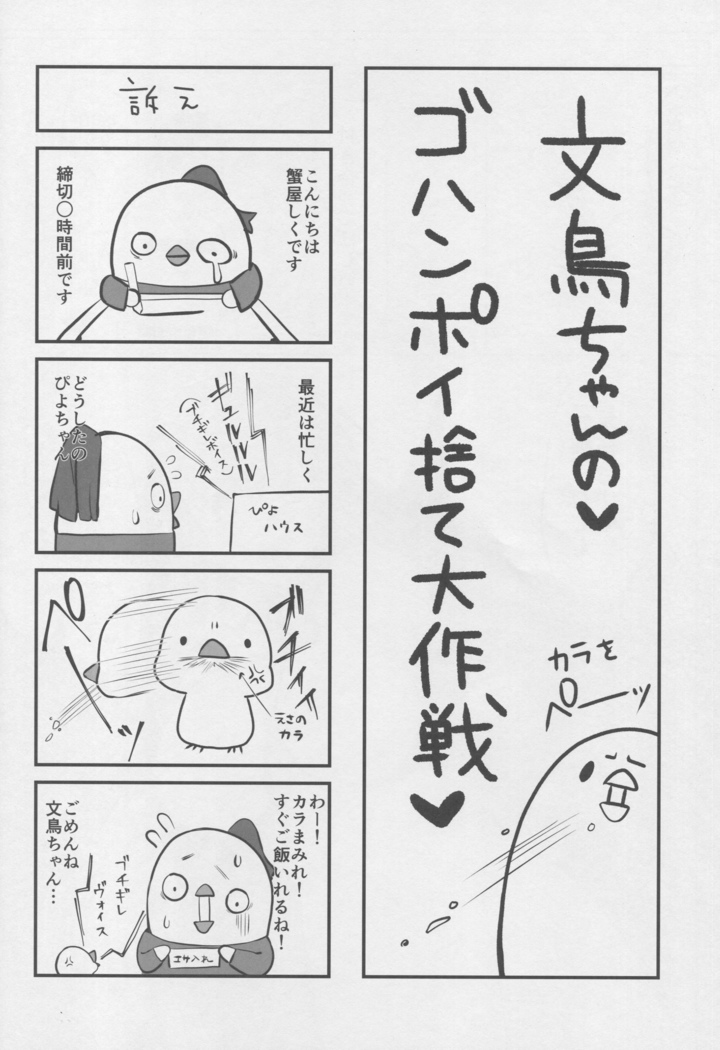 文鳥ちゃんの♥
ゴハンポイ捨て大作戦♥
カラを
ペーッ
訴え
こんにちは
蟹屋しくです
締切〇時間前です
最近は忙しく
ギュルルル
(ブチギレボイス)
ぴよ
ハウス
どうしたの
ぴよちゃん
ブチィィ
えさの
カラ
ペッ
わー!
カラまみれ!
すぐご飯いれるね!
エサ入れ
ブチギレ
ヴォイス
ごめんね
文鳥ちゃん…